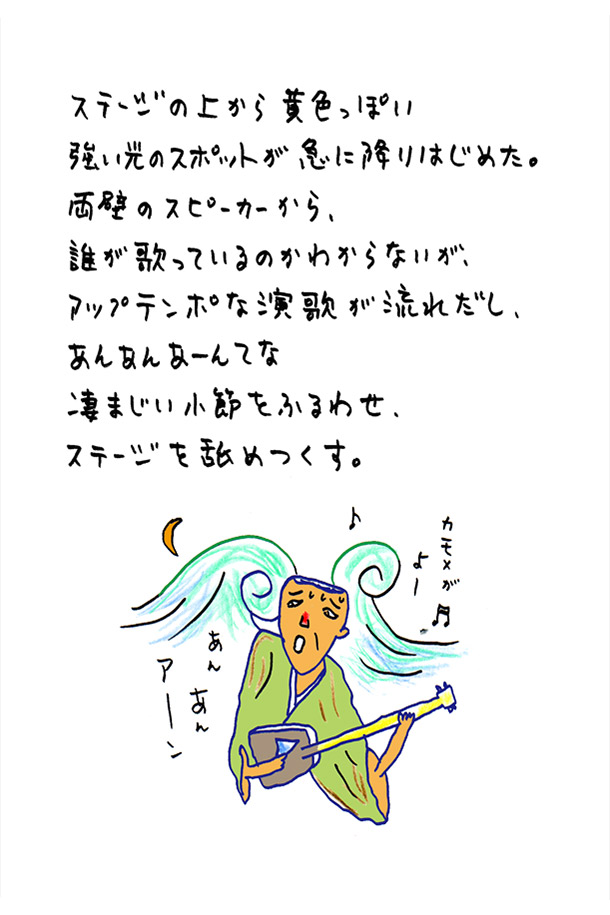 ステージの上から黄色っぽい
強い光のスポットが急に降りはじめた。
両壁のスピーカーから、
誰が歌っているのかわからないが、
アップテンポな演歌が流れだし、
あんあんあーんてな
凄まじい小節をふるわせ、
ステージを舐めつくす。
カモメが
よー
あん
あん
アーン